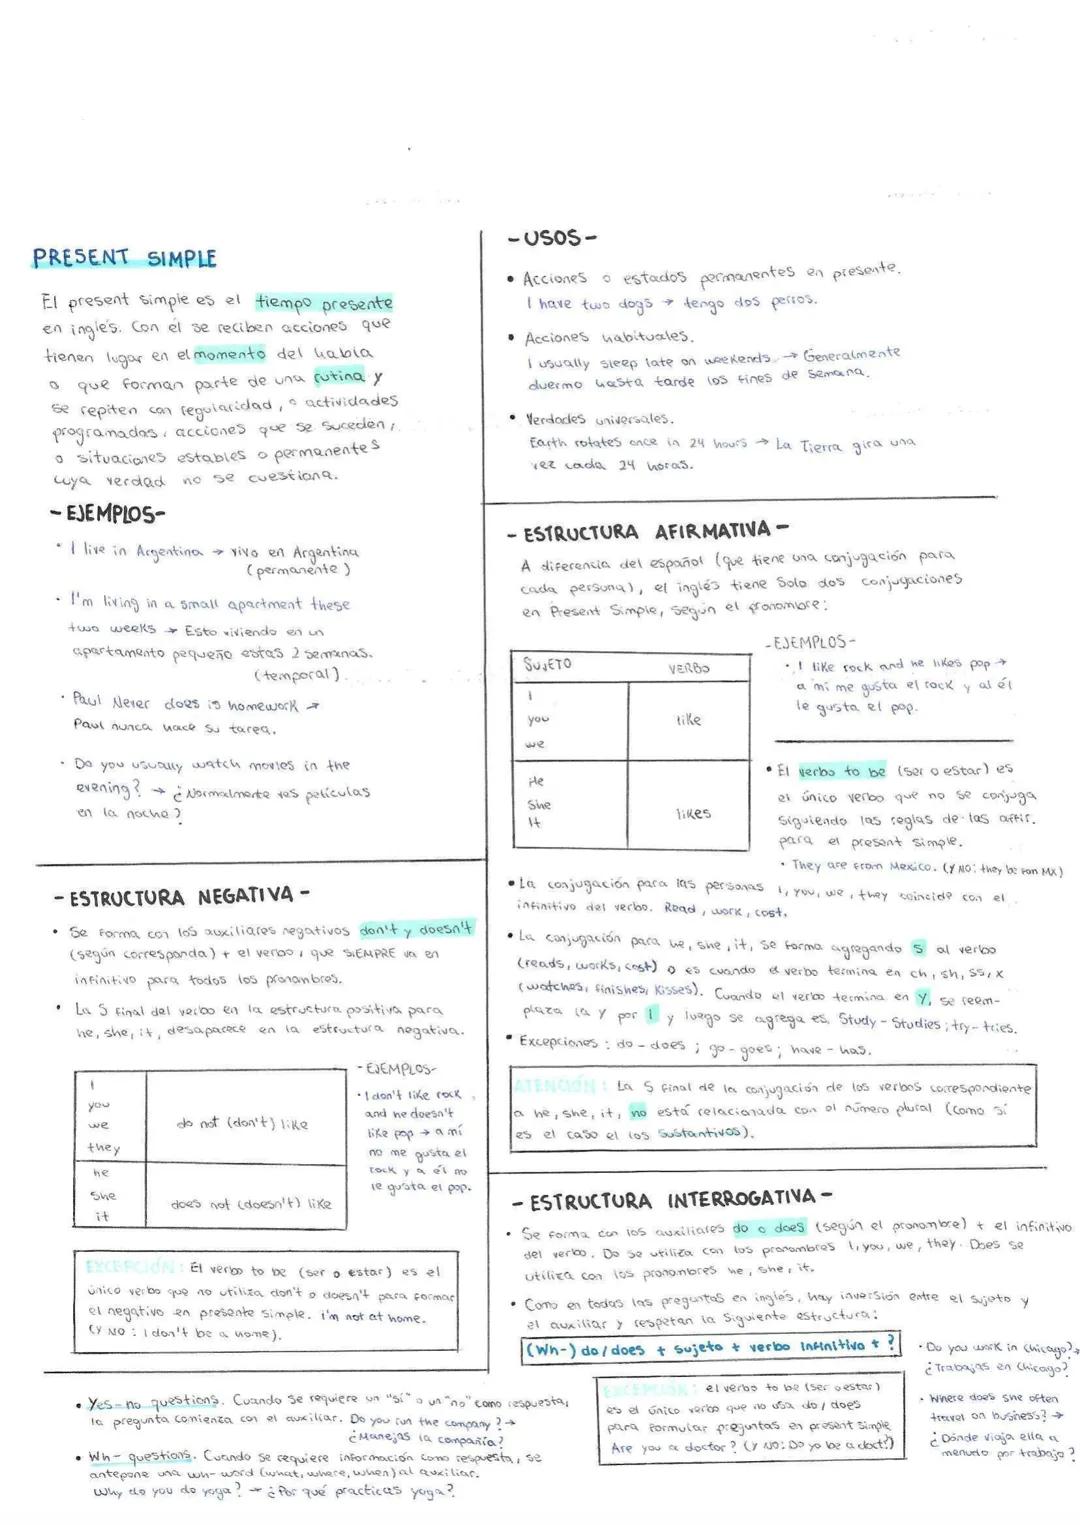 PRESENT SIMPLE
El present simple es el tiempo presente
en inglés. Con él se reciben acciones que
tienen lugar en el momento del habla
o que forman parte de una rutina y
se repiten con regularidad, o actividades
programadas, acciones que se suceden,
o situaciones estables o permanentes
cuya verdad no se cuestiona.
- EJEMPLOS-
• I live in Argentina → vivo en Argentina
(permanente)
• I'm living in a small apartment these
two weeks → Esto viviendo en un
apartamento pequeño estas 2 semanas.
(temporal)
• Paul Never does is homework →
Paul nunca hace su tarea.
• Do you usually watch movies in the
evening? → ¿Normalmente ves películas
en la noche?
- USOS -
• Acciones o estados permanentes en presente.
I have two dogs → tengo dos perros.
• Acciones habituales.
I usually sleep late on weekends → Generalmente
duermo hasta tarde los fines de semana.
• Verdades universales.
Earth rotates once in 24 hours → La Tierra gira una
vez cada 24 horas.
- ESTRUCTURA AFIRMATIVA -
A diferencia del español (que tiene una conjugación para
cada persona), el inglés tiene Solo dos conjugaciones
en Present Simple, Según el pronombre:
SUJETO VERBO
I
you
we
like
He
She
It
likes
-EJEMPLOS-
• I like rock and he likes pop →
a mi me gusta el rock y al él
le gusta el pop.
• El verbo to be (ser o estar) es
el único verbo que no se conjuga
siguiendo las reglas de las affir.
para el present simple.
• They are from Mexico. (y NO: they be from MX)
• La conjugación para las personas I, you, we, they coincide con el
infinitivo del verbo. Read, work, cost.
• La conjugación para he, she, it, se forma agregando s al verbo
(reads, works, cost) o es cuando el verbo termina en ch, sh, ss, x
(watches, finishes, kisses). Cuando el verbo termina en Y, se reem-
plaza la y por I y luego se agrega es. Study - Studies; try - tries.
• Excepciones: do - does; go - goes; have - has.
ATENCIÓN: La S final de la conjugación de los verbos correspondiente
a he, she, it, no está relacionada con el número plural (como sí
es el caso el los sustantivos).
- ESTRUCTURA NEGATIVA -
• Se forma con los auxiliares negativos don't y doesn't
(según corresponda) + el verbo, que SIEMPRE va en
infinitivo para todos los pronombres.
• La S final del verbo en la estructura positiva para
he, she, it, desaparece en la estructura negativa.
I
you
we
they
do not (don't) like
he
She
it
does not (doesn't) like
- EJEMPLOS-
• I don't like rock
and he doesn't
like pop → a mí
no me gusta el
rock y a él no
le gusta el pop.
EXCEPCIÓN: El verbo to be (ser o estar) es el
único verbo que no utiliza don't o doesn't para formar
el negativo en presente simple. i'm not at home.
(Y NO: I don't be a home).
- ESTRUCTURA INTERROGATIVA -
• Se forma con los auxiliares do o does (según el pronombre) + el infinitivo
del verbo. Do se utiliza con los pronombres I, you, we, they. Does se
utiliza con los pronombres he, she, it.
• Como en todas las preguntas en inglés, hay inversión entre el sujeto y
el auxiliar y respetan la siguiente estructura:
(Wh-) do/does + sujeto + verbo infinitivo + ?
EXCEPCIÓN: el verbo to be (ser o estar)
es el único verbo que no usa do/does
para formular preguntas en present simple
Are you a doctor? (y NO: Do yo be a doct?)
• Do you work in chicago? →
¿Trabajas en Chicago?
• Where does she often
travel on business? →
¿Dónde viaja ella a
menudo por trabajo?
• Yes-no questions. Cuando se requiere un "sí" o un "no" como respuesta,
la pregunta comienza con el auxiliar. Do you run the company? →
¿Manejas la compañía?
• Wh- questions. Cuando se requiere información como respuesta, se
antepone una wh-word (what, where, when) al auxiliar.
Why do you do yoga? → ¿Por qué practicas yoga?